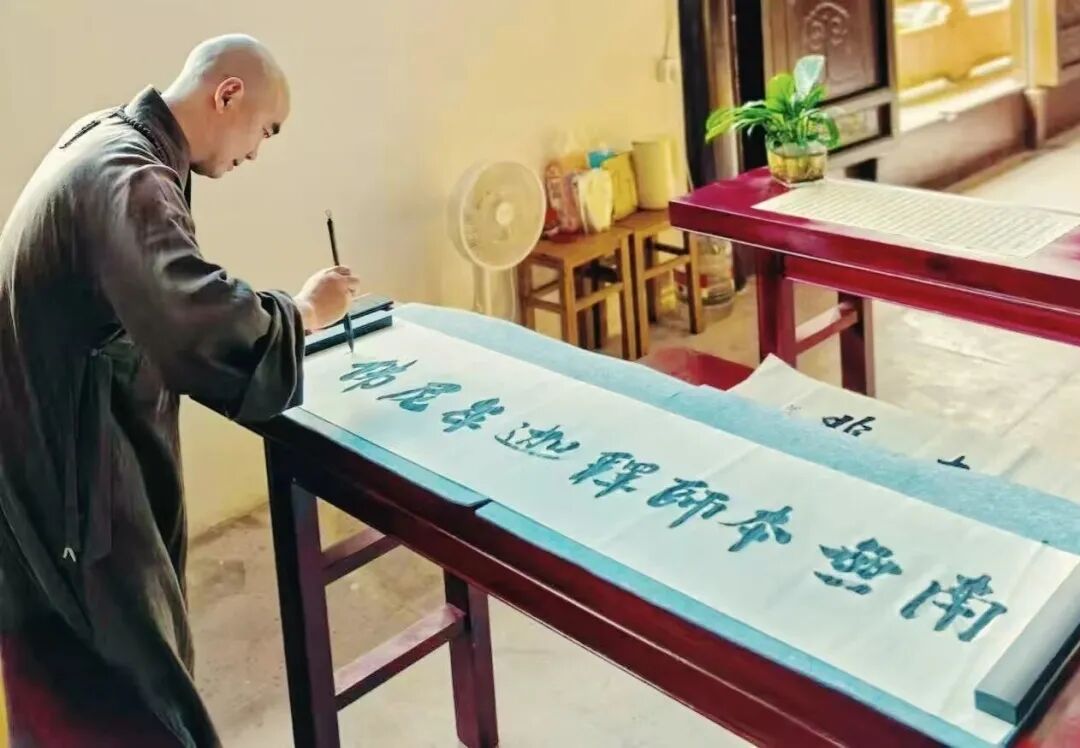 南無本師釋迦牟尼佛